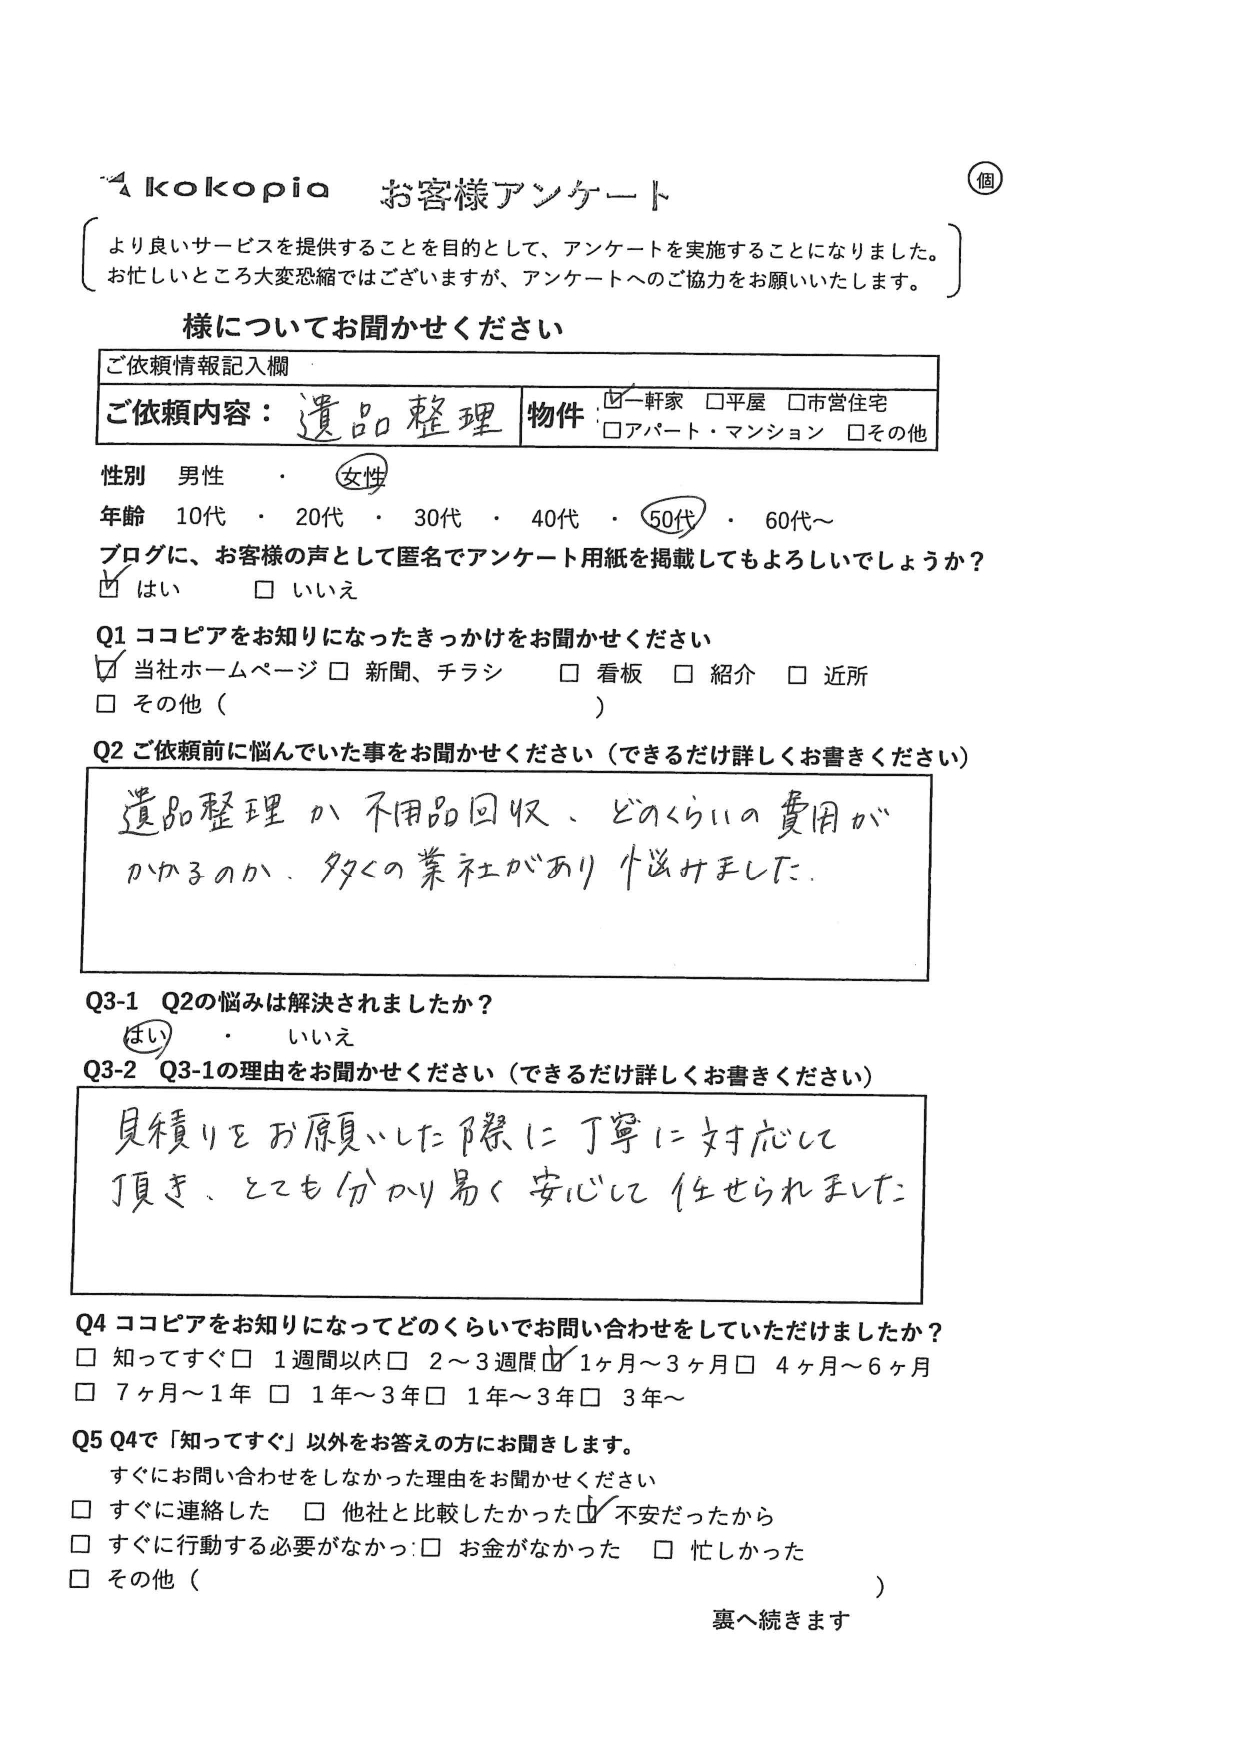 kokopia お客様アンケート 個
より良いサービスを提供することを目的として、アンケートを実施することになりました。
お忙しいところ大変恐縮ではございますが、アンケートへのご協力をお願いいたします。
様についてお聞かせください
ご依頼情報記入欄
ご依頼内容： 遺品整理 物件: ☑一軒家 □平屋 □市営住宅
□アパート・マンション □その他
性別 男性 ・ 女性
年齢 10代 ・ 20代 ・ 30代 ・ 40代 ・ 50代 ・ 60代～
ブログに、お客様の声として匿名でアンケート用紙を掲載してもよろしいでしょうか？
☑ はい □ いいえ
Q1 ココピアをお知りになったきっかけをお聞かせください
☑ 当社ホームページ □ 新聞、チラシ □ 看板 □ 紹介 □ 近所
□ その他（ ）
Q2 ご依頼前に悩んでいた事をお聞かせください（できるだけ詳しくお書きください）
遺品整理か不用品回収、どのくらいの費用が
かかるのか、多くの業社があり悩みました.
Q3-1 Q2の悩みは解決されましたか？
はい ・ いいえ
Q3-2 Q3-1の理由をお聞かせください（できるだけ詳しくお書きください）
見積りをお願いした際に丁寧に対応して
頂き、とても分かり易く安心して任せられました
Q4 ココピアをお知りになってどのくらいでお問い合わせをしていただけましたか？
□ 知ってすぐ □ 1週間以内 □ 2～3週間 ☑ 1ヶ月～3ヶ月 □ 4ヶ月～6ヶ月
□ 7ヶ月～1年 □ 1年～3年 □ 1年～3年 □ 3年～
Q5 Q4で「知ってすぐ」以外をお答えの方にお聞きします。
すぐにお問い合わせをしなかった理由をお聞かせください
□ すぐに連絡した □ 他社と比較したかった ☑ 不安だったから
□ すぐに行動する必要がなかっ □ お金がなかった □ 忙しかった
□ その他（ ）
裏へ続きます